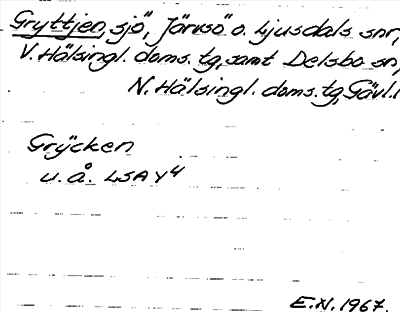 Gryttjen, sjö, Järvsö o. Ljusdals snr,
V. Hälsingl. doms. tg, samt Delsbo sn,
N. Hälsingl. doms. tg, Gävl. l
Grycken
u. å. LSA Y4
E.N. 1967.